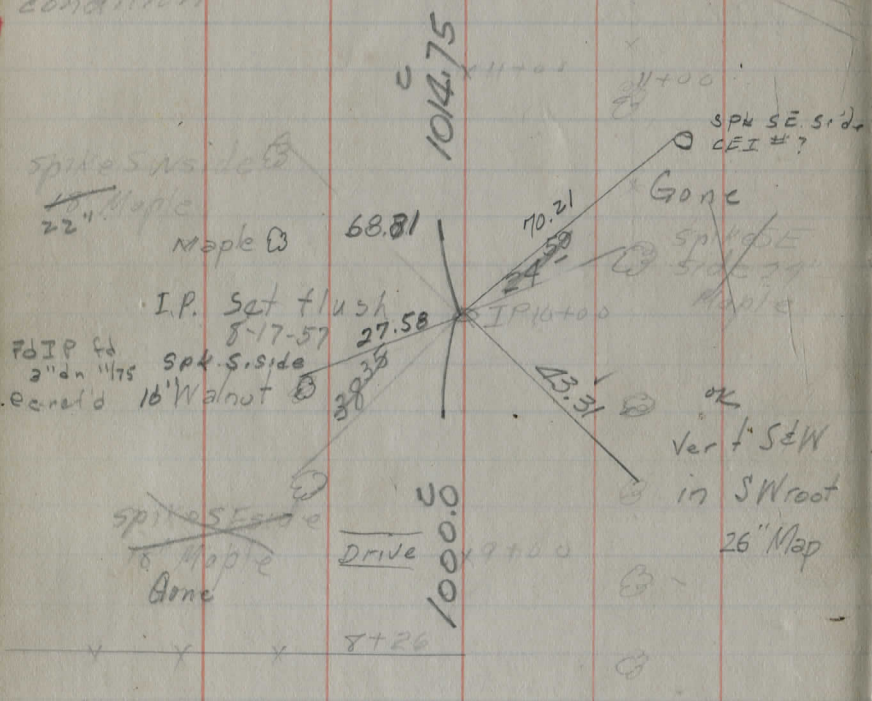 condition
C 1014.75
11+00
11+00
Spk SE. Side
CEI # ?
Gone
Spike SW side
18" Maple
22"
Maple
68.81
70.21
24.59
Spike SE
Side 24"
Maple
I.P. Set flush
8-17-57
IP 10+00
27.58
Fd IP fd
2" dn 11/75
Spk S. Side
16" Walnut
38.35
43.31
OK
Ver t S&W
in SW root
26" Map
Spike SE side
18" Maple
Gone
Drive
C 1000.0
9+00
8+26